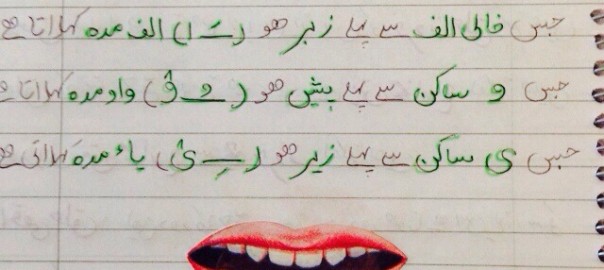 جس خالی الف سے پہلے زبر ھو (ـَ ا) الف مدہ کہلاتا ھے
جس و ساکن سے پہلے پیش ھو (ـُ وْ) واو مدہ کہلاتا ھے
جس ی ساکن سے پہلے زیر ھو (ـِ یْ) یاء مدہ کہلاتی ھے